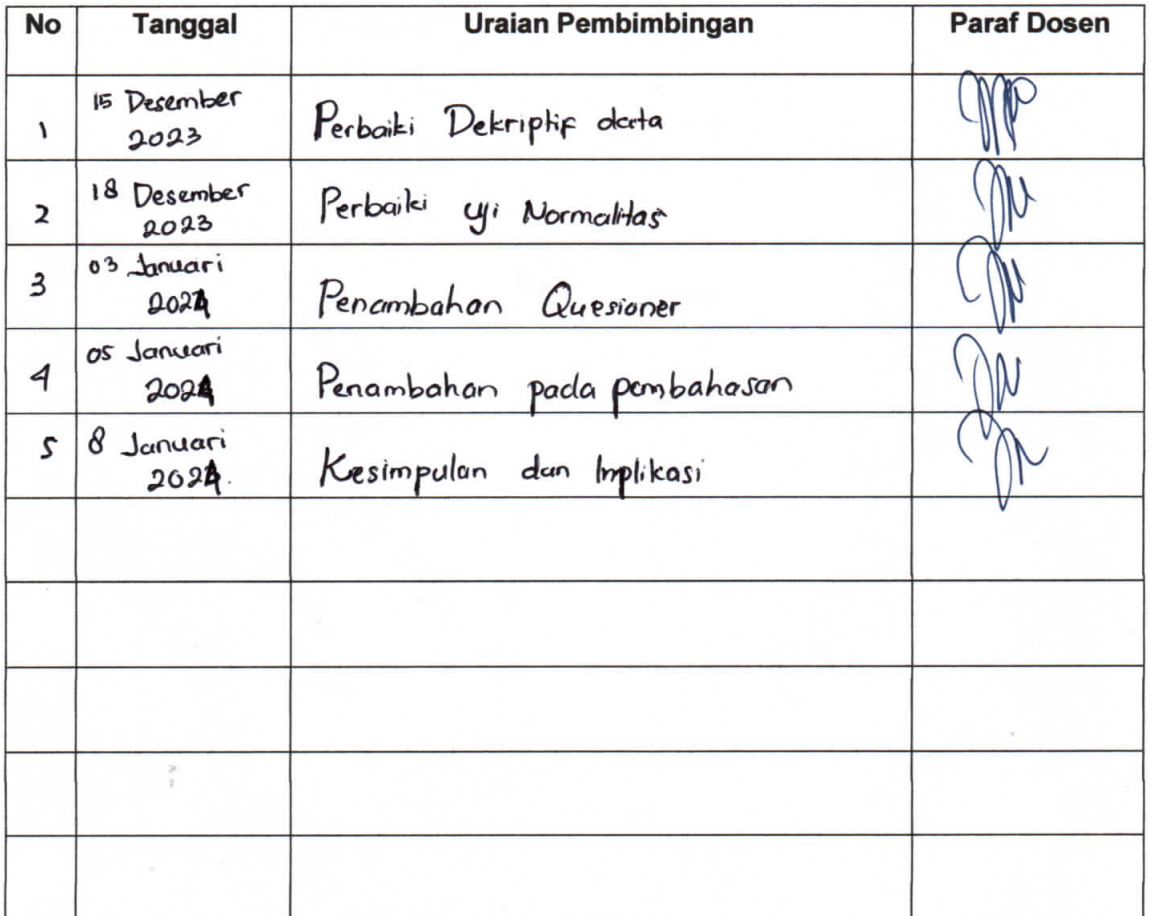 No Tanggal Uraian Pembimbingan Paraf Dosen
15 Desember
1 2023 Perbaiki Dekriptif data
18 Desember
2 2023 Perbaiki uji Normalitas
03 Januari
3 2024 Penambahan Quesioner
05 Januari
4 2024 Penambahan pada pembahasan
5 8 Januari
2024. Kesimpulan dan Implikasi